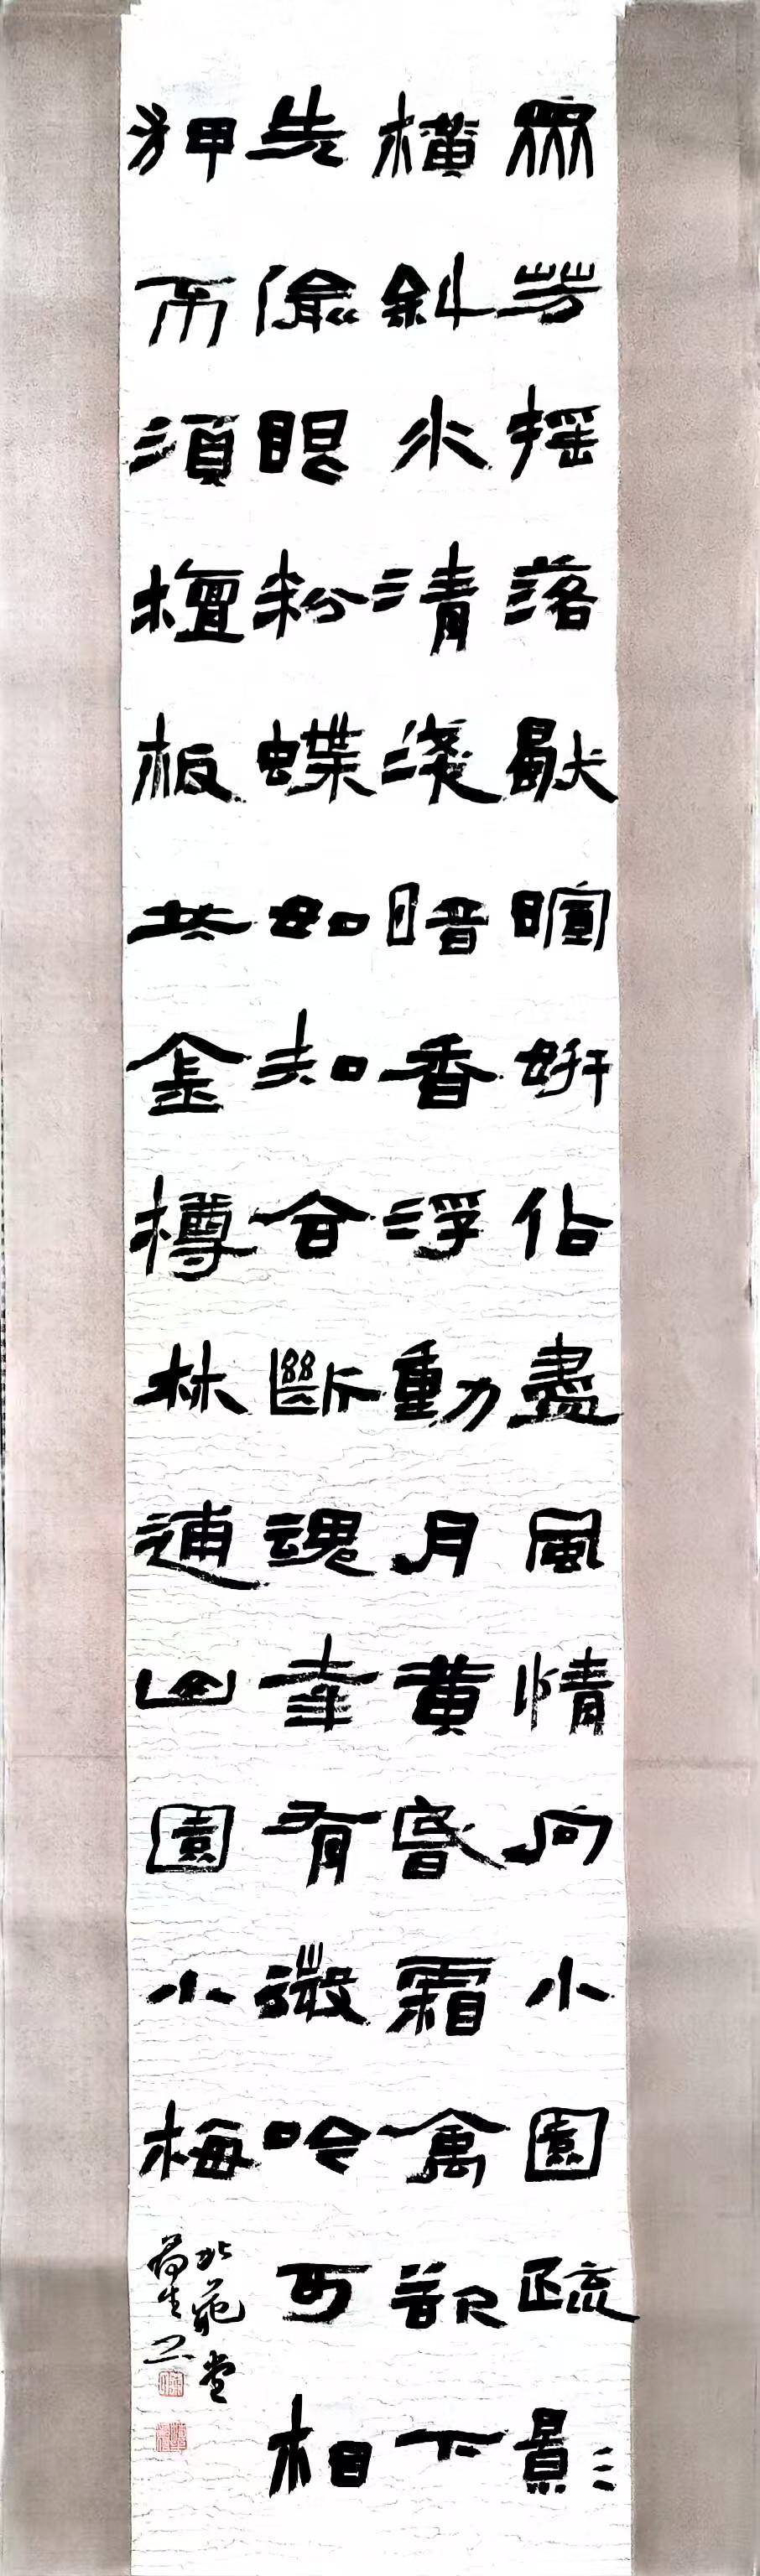 眾芳搖落獨暄妍佔盡風情向小園疏影
橫斜水清淺暗香浮動月黃昏霜禽欲下
先偷眼粉蝶如知合斷魂幸有微吟可相
狎不須檀板共金樽林逋山園小梅
北苑堂
生书